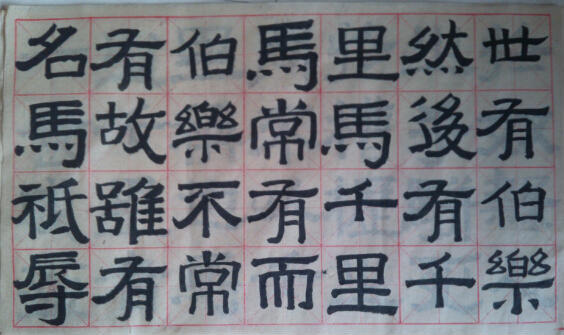 世有伯樂
然後有千
里馬千里
馬常有而
伯樂不常
有故雖有
名馬祗辱